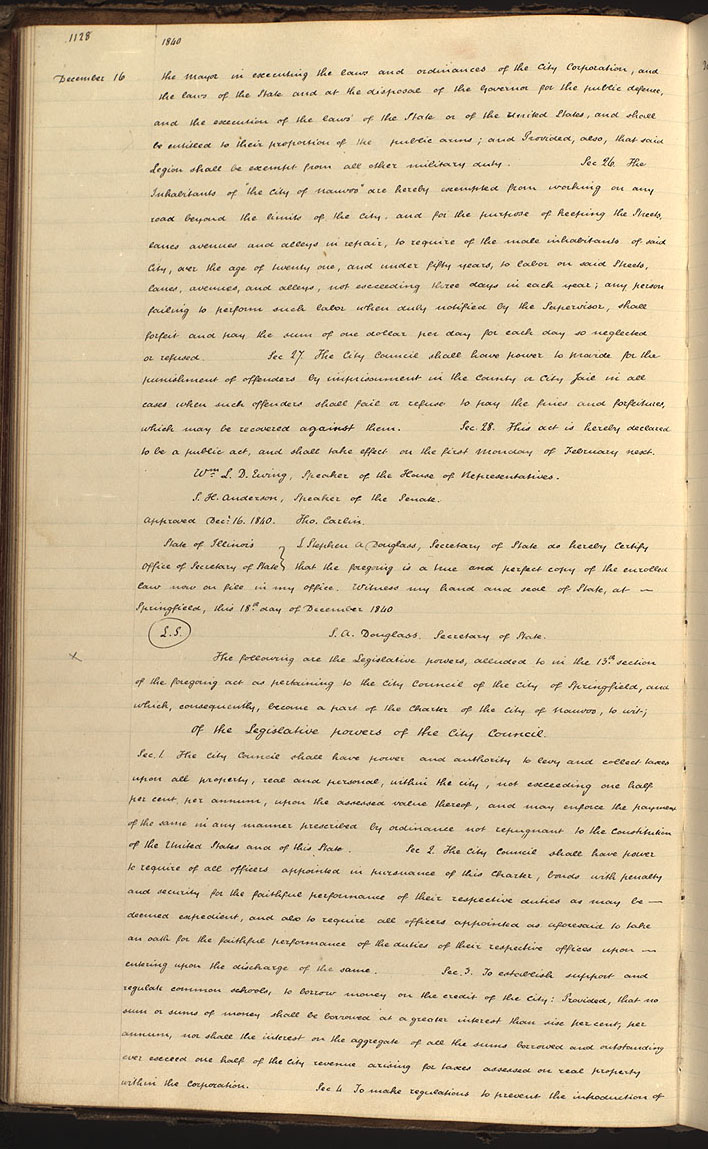 1128
1840
December 16
the Mayor in executing the laws and ordinances of the City Corporation, and
the laws of the State and at the disposal of the Governor for the public defense,
and the execution of the laws of the State or of the United States, and shall
be entitled to their proportion of the public arms; and Provided, also, that said
Legion shall be exempt from all other military duty. Sec 26. The
Inhabitants of "the City of Nauvoo" are hereby exempted from working on any
road beyond the limits of the City, and for the purpose of keeping the Streets,
lanes avenues and alleys in repair, to require of the male inhabitants of said
City, over the age of twenty one, and under fifty years, to labor on said Streets,
lanes, avenues, and alleys, not exceeding three days in each year; any person
failing to perform such labor when duly notified by the Supervisor, shall
forfeit and pay the sum of one dollar per day for each day so neglected
or refused. Sec 27. The City Council shall have power to provide for the
punishment of offenders by imprisonment in the County or City Jail in all
cases when such offenders shall fail or refuse to pay the fines and forfeitures,
which may be recovered against them. Sec. 28. This act is hereby declared
to be a public act, and shall take effect on the first Monday of February next.
Wm L. D. Ewing, Speaker of the House of Representatives.
S. H. Anderson, Speaker of the Senate.
Approved Decr. 16. 1840. Tho. Carlin.
State of Illinois } I Stephen A Douglass, Secretary of State do hereby Certify
Office of Secretary of State } that the foregoing is a true and perfect copy of the enrolled
law now on file in my office. Witness my hand and seal of State, at —
Springfield, this 18th day of December 1840
L.S. S. A. Douglass. Secretary of State.
X The following are the Legislative powers, alluded to in the 13th section
of the foregoing act as pertaining to the City Council of the City of Springfield, and
which, consequently, become a part of the Charter of the City of Nauvoo, to wit;
Of the Legislative powers of the City Council.
Sec. 1. The City Council shall have power and authority to levy and collect taxes
upon all property, real and personal, within the city, not exceeding one half
per cent. per annum, upon the assessed value thereof, and may enforce the payment
of the same in any manner prescribed by ordinance not repugnant to the Constitution
of the United States and of this State. Sec 2. The City Council shall have power
to require of all officers appointed in pursuance of this Charter, bonds with penalty
and security for the faithful performance of their respective duties as may be —
deemed expedient, and also to require all officers appointed as aforesaid to take
an oath for the faithful performance of the duties of their respective offices upon —
entering upon the discharge of the same. Sec. 3. To establish support and
regulate common schools, to borrow money on the credit of the City: Provided, that no
sum or sums of money shall be borrowed at a greater interest than six per cent, per
annum, nor shall the interest on the aggregate of all the sums borrowed and outstanding
ever exceed one half of the City revenue arising for taxes assessed on real property
within the Corporation. Sec 4. To make regulations to prevent the introduction of